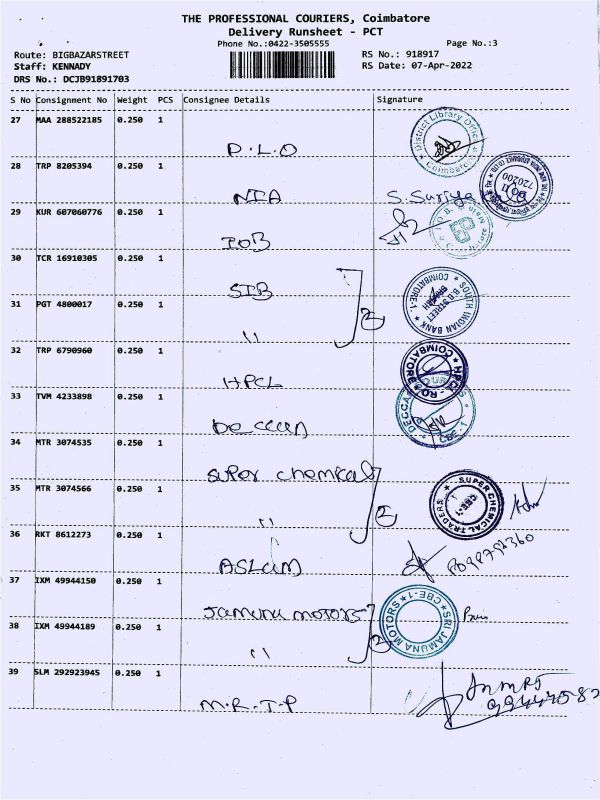 THE PROFESSIONAL COURIERS, Coimbatore
Delivery Runsheet - PCT
Phone No.:0422-3505555
Page No.:3
Route: BIGBAZARSTREET
RS No.: 918917
Staff: KENNADY
RS Date: 07-Apr-2022
DRS No.: DCJB91891703
S No Consignment No Weight PCS Consignee Details Signature
27 MAA 288522185 0.250 1
D.L.O
District Library Office Coimbatore
28 TRP 8205394 0.250 1
NIA S. Suriya
720200
29 KUR 607060776 0.250 1
IOB
30 TCR 16910305 0.250 1
SIB
SOUTH INDIAN BANK B.B. STREET BRANCH COIMBATORE-1
31 PGT 4800017 0.250 1
" 2
32 TRP 6790960 0.250 1
HPCL
HPCL - RO COIMBATORE
33 TVM 4233898 0.250 1
Deccan
DECCA CBE-1
34 MTR 3074535 0.250 1
super chemical
35 MTR 3074566 0.250 1
" 2
SUPER CHEMICAL TRADERS CBE-1
36 RKT 8612273 0.250 1
ASLAM
37 IXM 49944150 0.250 1
Jamuna motors
SRI JAMUNA MOTORS CBE-1
38 IXM 49944189 0.250 1
" 2
39 SLM 292923945 0.250 1
M.R.T.P